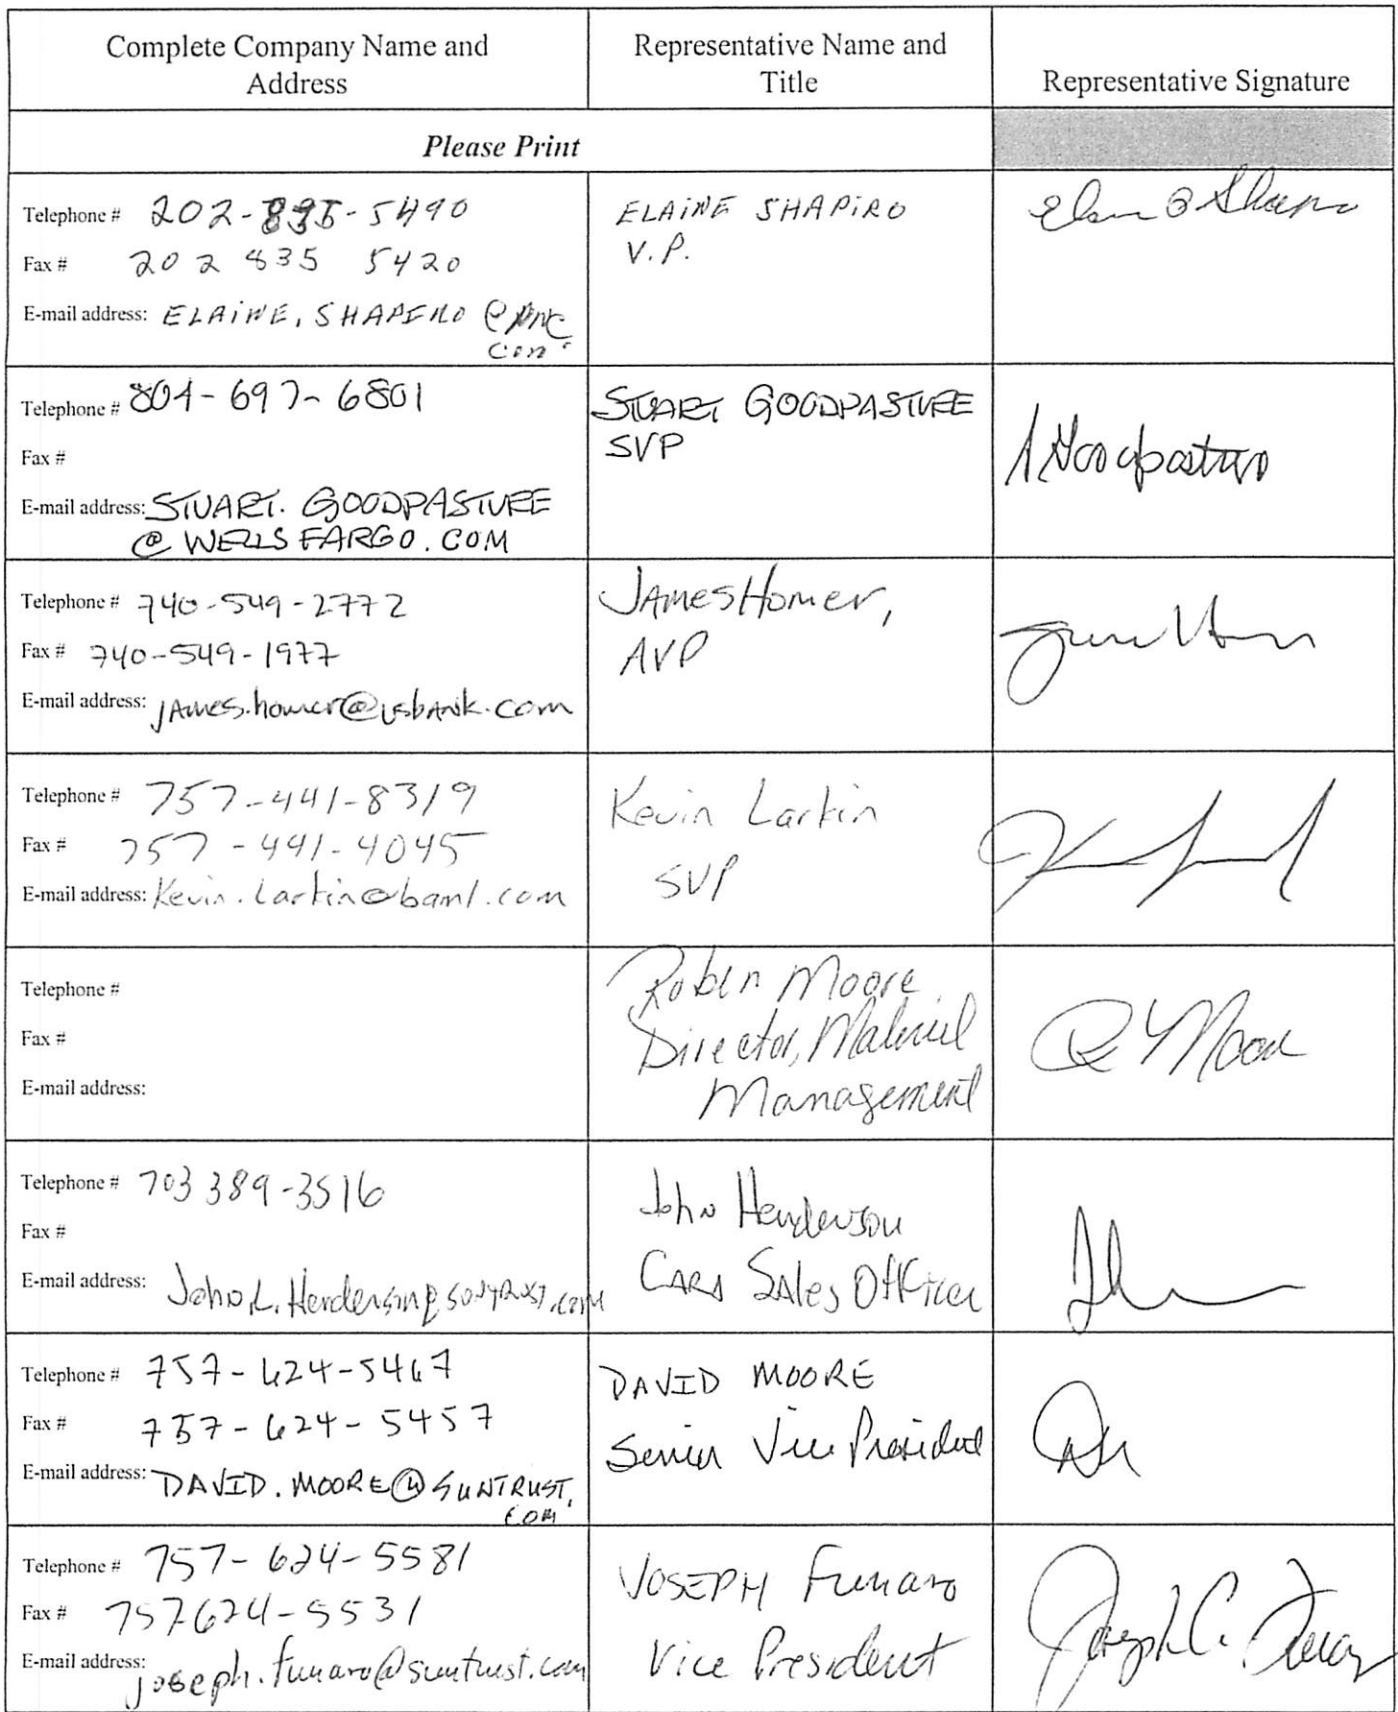 Complete Company Name and
Address
Representative Name and
Title
Representative Signature
Please Print
Telephone # 202-835-5490
Fax # 202 835 5420
E-mail address: ELAINE.SHAPIRO @PNC.
com
ELAINE SHAPIRO
V.P.
Telephone # 804-697-6801
Fax #
E-mail address: STUART. GOODPASTURE
@ WELLS FARGO.COM
STUART GOODPASTURE
SVP
Telephone # 740-549-2772
Fax # 740-549-1977
E-mail address: JAmes.homer@usbank.com
JAmes Homer,
AVP
Telephone # 757-441-8319
Fax # 757-441-4045
E-mail address: Kevin.Larkin@baml.com
Kevin Larkin
SVP
Telephone #
Fax #
E-mail address:
Robin Moore
Director, Materiel
Management
Telephone # 703 389-3516
Fax #
E-mail address: John.L.Henderson@suntrust.com
John Henderson
CARD SAles Officer
Telephone # 757-624-5467
Fax # 757-624-5457
E-mail address: DAVID.MOORE@SUNTRUST.
COM
DAVID MOORE
Senior Vice President
Telephone # 757-624-5581
Fax # 757624-5531
E-mail address: joseph.funaro@suntrust.com
JOSEPH Funaro
Vice President
Joseph C. Funaro